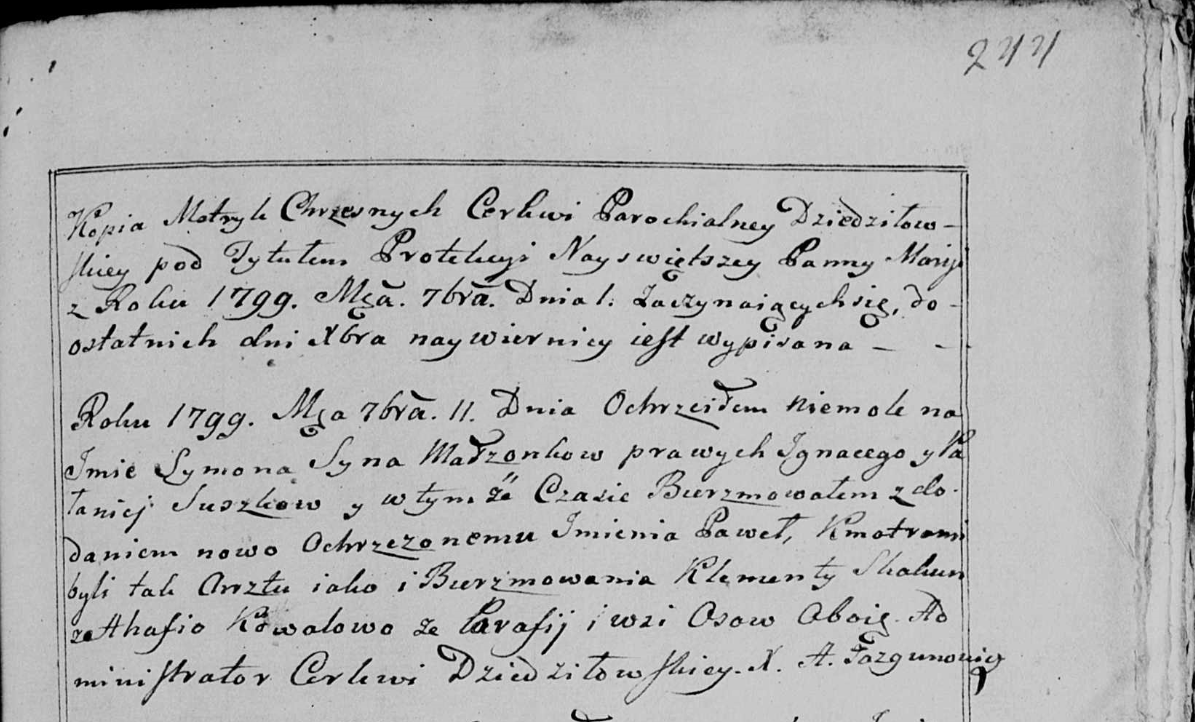 244
Kopia Metryk Chrzesnych Cerkwi Parochialney Dziedziłow-
skiey pod Tytułem Protekcyi Nayswiętszey Panny Maryi
z Roku 1799. Mca. 7bra. Dnia 1. Zaczynaiących się, do-
ostatnich dni Xbra naywierniey iest wypisana — -
Roku 1799. Mca 7bra. 11. Dnia Ochrzciłem Niemole na
Imie Symona Syna Małzonkow prawych Ignacego y Ka
taniej Suszkow y w tym że Czasie Bierzmowałem z do-
daniem nowo Ochrzczonemu Imienia Paweł, Kmotrami
byli tak Chrztu iako i Bierzmowania Klementy Skakun
ze Ahafio Kowalowo ze Parafij i wsi Osow Oboie. Ad
ministrator Cerkwi Dziedziłowskiey. X. A.